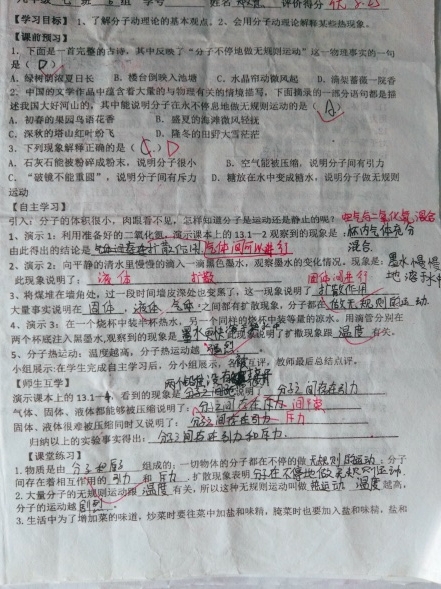 【学习目标】 1、了解分子动理论的基本观点。2、会用分子动理论解释某些热现象。
【课前预习】
1、下面是一首完整的古诗，其中反映了“分子不停地做无规则运动”这一物理事实的一句
是（ D ）
A、绿树阴浓夏日长 B、楼台倒映入池塘 C、水晶帘动微风起 D、满架蔷薇一院香
2、中国的文学作品中蕴含着大量的与物理有关的情境描写，下面摘录的一部分语句都是描
述我国大好河山的，其中能说明分子在永不停息地做无规则运动的是（ A ）
A、初春的果园鸟语花香 B、盛夏的海滩微风轻抚
C、深秋的塔山红叶纷飞 D、隆冬的田野大雪茫茫
3、下列现象解释正确的是（ C. D
A、石灰石能被粉碎成粉末，说明分子很小 B、空气能被压缩，说明分子间有引力
C、“破镜不能重圆”，说明分子间有斥力 D、糖放在水中变成糖水，说明分子做无规则
运动
【自主学习】
引入：分子的体积很小，肉眼看不见，怎样知道分子是运动还是静止的呢？
1、演示1：利用准备好的二氧化氮，演示课本上的13.1-2观察到的现象是：
由此得出的结论是 气体间可以进行
2、演示2：向平静的清水里慢慢的滴入一滴墨色墨水，观察墨水的变化情况。现象是：墨水慢慢
此现象说明了： 液体 扩散 地溶于水中
3、将煤堆在墙角处，过一段时间墙皮深处也变黑了，这一现象说明了 扩散作用
大量事实说明在 固体 、 液体 、 气体 之间都有扩散现象，分子都在 做无规则的运动.
4、演示3：在一个烧杯中装半杯热水，另一个同样的烧杯中装等量的凉水。用滴管分别在
两个杯底注入墨水,观察到的现象是 说明了扩散现象跟 温度 有关。
5、分子热运动：温度越高，分子热运动越 强烈
小组展示:在学生完成自主学习后，分小组展示，各组互评，教师最后总结点评。
【师生互学】
演示课本上的 13.1—4，看到的现象是 说明： 分子间存在引力
气体、固体、液体都能够被压缩说明了： 分子之间存在斥力 间隙
固体、液体很难被压缩同时又说明了： 分子之间存在 斥力
归纳以上的实验事实得出： 分子之间存在引力和斥力.
【课堂练习】
1.物质是由 分子和原子 组成的；一切物体的分子都在不停的做 无规则的运动 ；分子
间存在着相互作用的 引力 和 斥力 ．扩散现象表明 分子在不停地做无规则运动.
2.大量分子的无规则运动跟 温度 有关，所以这种无规则运动叫做 热运动 ， 温度 越高，
分子的运动越 剧烈 .
3.生活中为了增加菜的味道，炒菜时要往菜中加盐和味精，腌菜时也要加入盐和味精，盐和